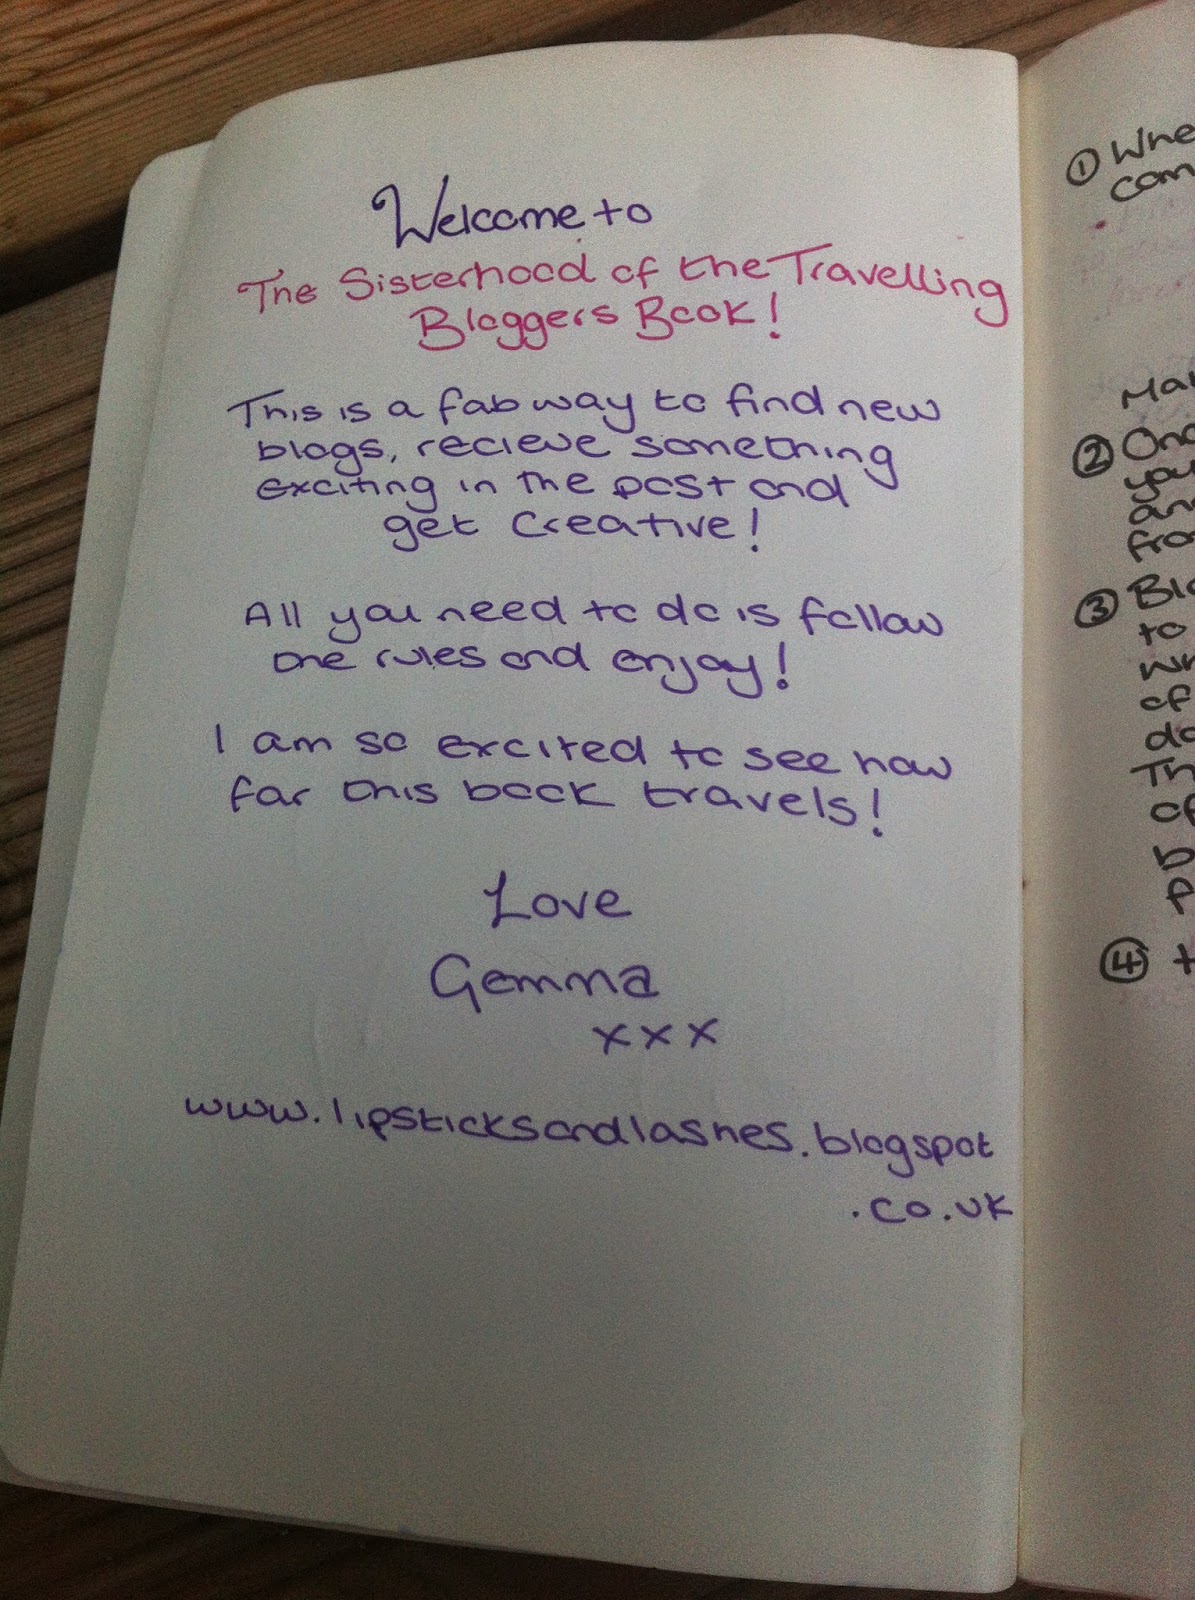 Welcome to
The Sisterhood of the Travelling
Bloggers Book!
This is a fab way to find new
blogs, recieve something
exciting in the post and
get creative!
All you need to do is follow
the rules and enjoy!
I am so excited to see how
far this book travels!
Love
Gemma
xxx
www.lipsticksandlashes.blogspot
.co.uk
①
②
you
③
to
of
④